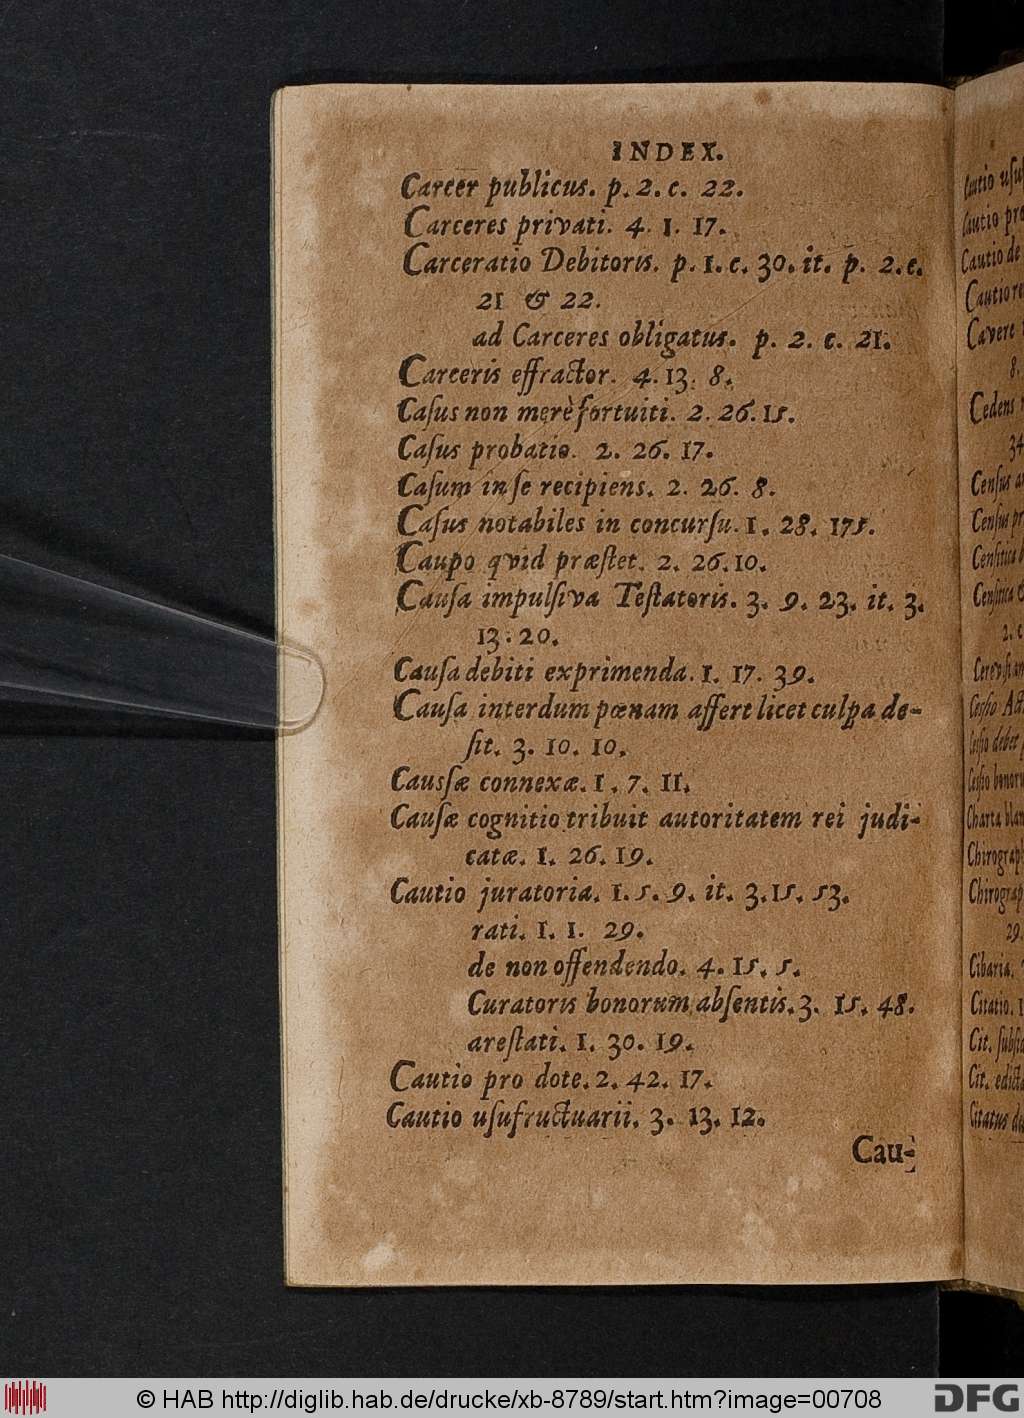 INDEX.
Carcer publicus. p. 2. c. 22.
Carceres privati. 4. 1. 17.
Carceratio Debitoris. p. 1. c. 30. it. p. 2. c.
21 & 22.
ad Carceres obligatus. p. 2. c. 21.
Carceris effractor. 4. 13. 8.
Caſus non merè fortuiti. 2. 26. 15.
Caſus probatio. 2. 26. 17.
Caſum in ſe recipiens. 2. 26. 8.
Caſus notabiles in concurſu. 1. 28. 175.
Caupo qvid præſtet. 2. 26. 10.
Cauſa impulſiva Teſtatoris. 3. 9. 23. it. 3.
13. 20.
Cauſa debiti exprimenda. 1. 17. 39.
Cauſa interdum pœnam affert licet culpa de-
ſit. 3. 10. 10.
Causſæ connexæ. 1. 7. 11.
Cauſæ cognitio tribuit autoritatem rei judi-
catæ. 1. 26. 19.
Cautio juratoria. 1. 5. 9. it. 3. 15. 53.
rati. 1. 1. 29.
de non offendendo. 4. 15. 5.
Curatoris bonorum abſentis. 3. 15. 48.
areſtati. 1. 30. 19.
Cautio pro dote. 2. 42. 17.
Cautio uſufructuarii. 3. 13. 12.
Cau-
Cautio
Cautio
Cautio de
Cautio
Cavere
8.
Cedens
34
Cenſus
Cenſus
Cenſitica
Cenſitica
2. c
Ceſſio
Ceſſio debet
Ceſſio
Charta
29.
Cibaria.
Citatio.
Cit.
Cit.
Citatus
© HAB http://diglib.hab.de/drucke/xb-8789/start.htm?image=00708
DFG